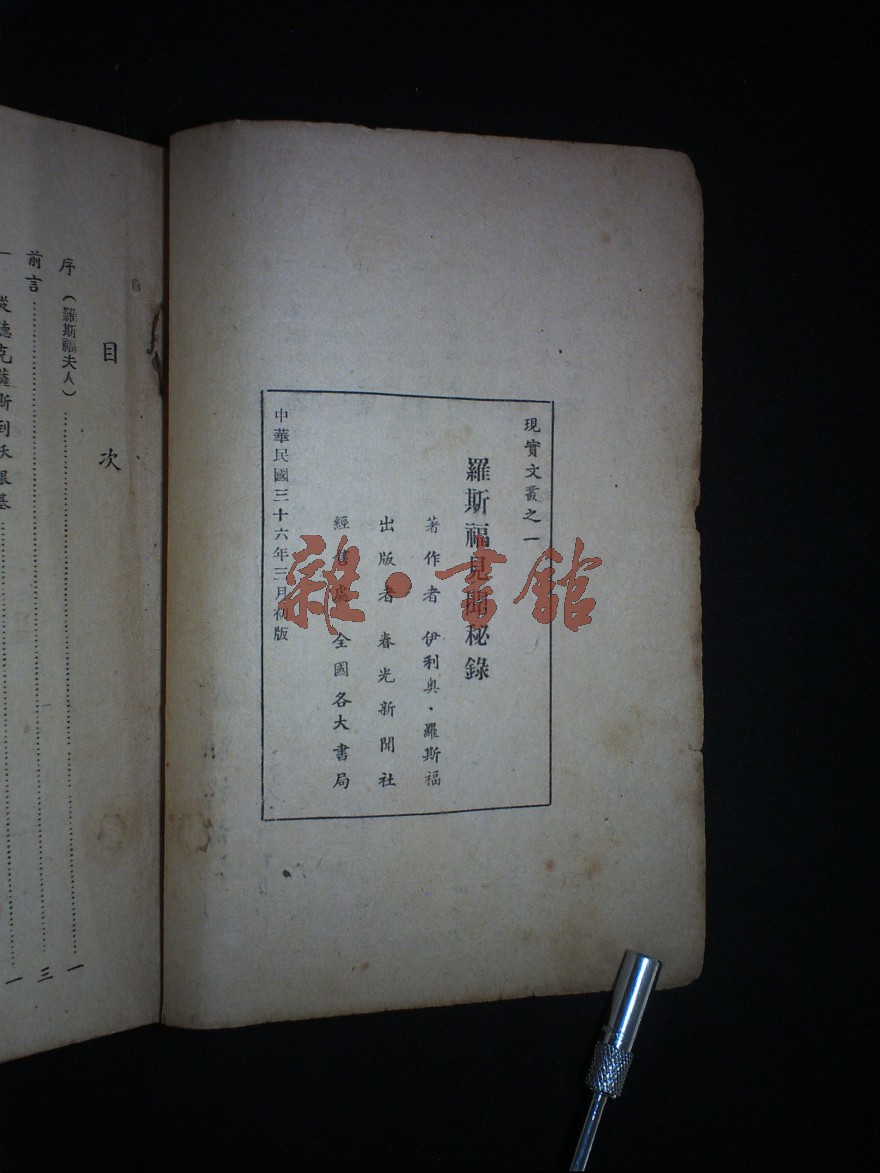 現實文叢之一
羅斯福見聞秘錄
著作者 伊利奧·羅斯福
出版者 春光新聞社
經售處 全國各大書局
中華民國三十六年三月初版
目次
序（羅斯福夫人）……一
前言……三
一 從德克薩斯到沃根基……一
雜·書館